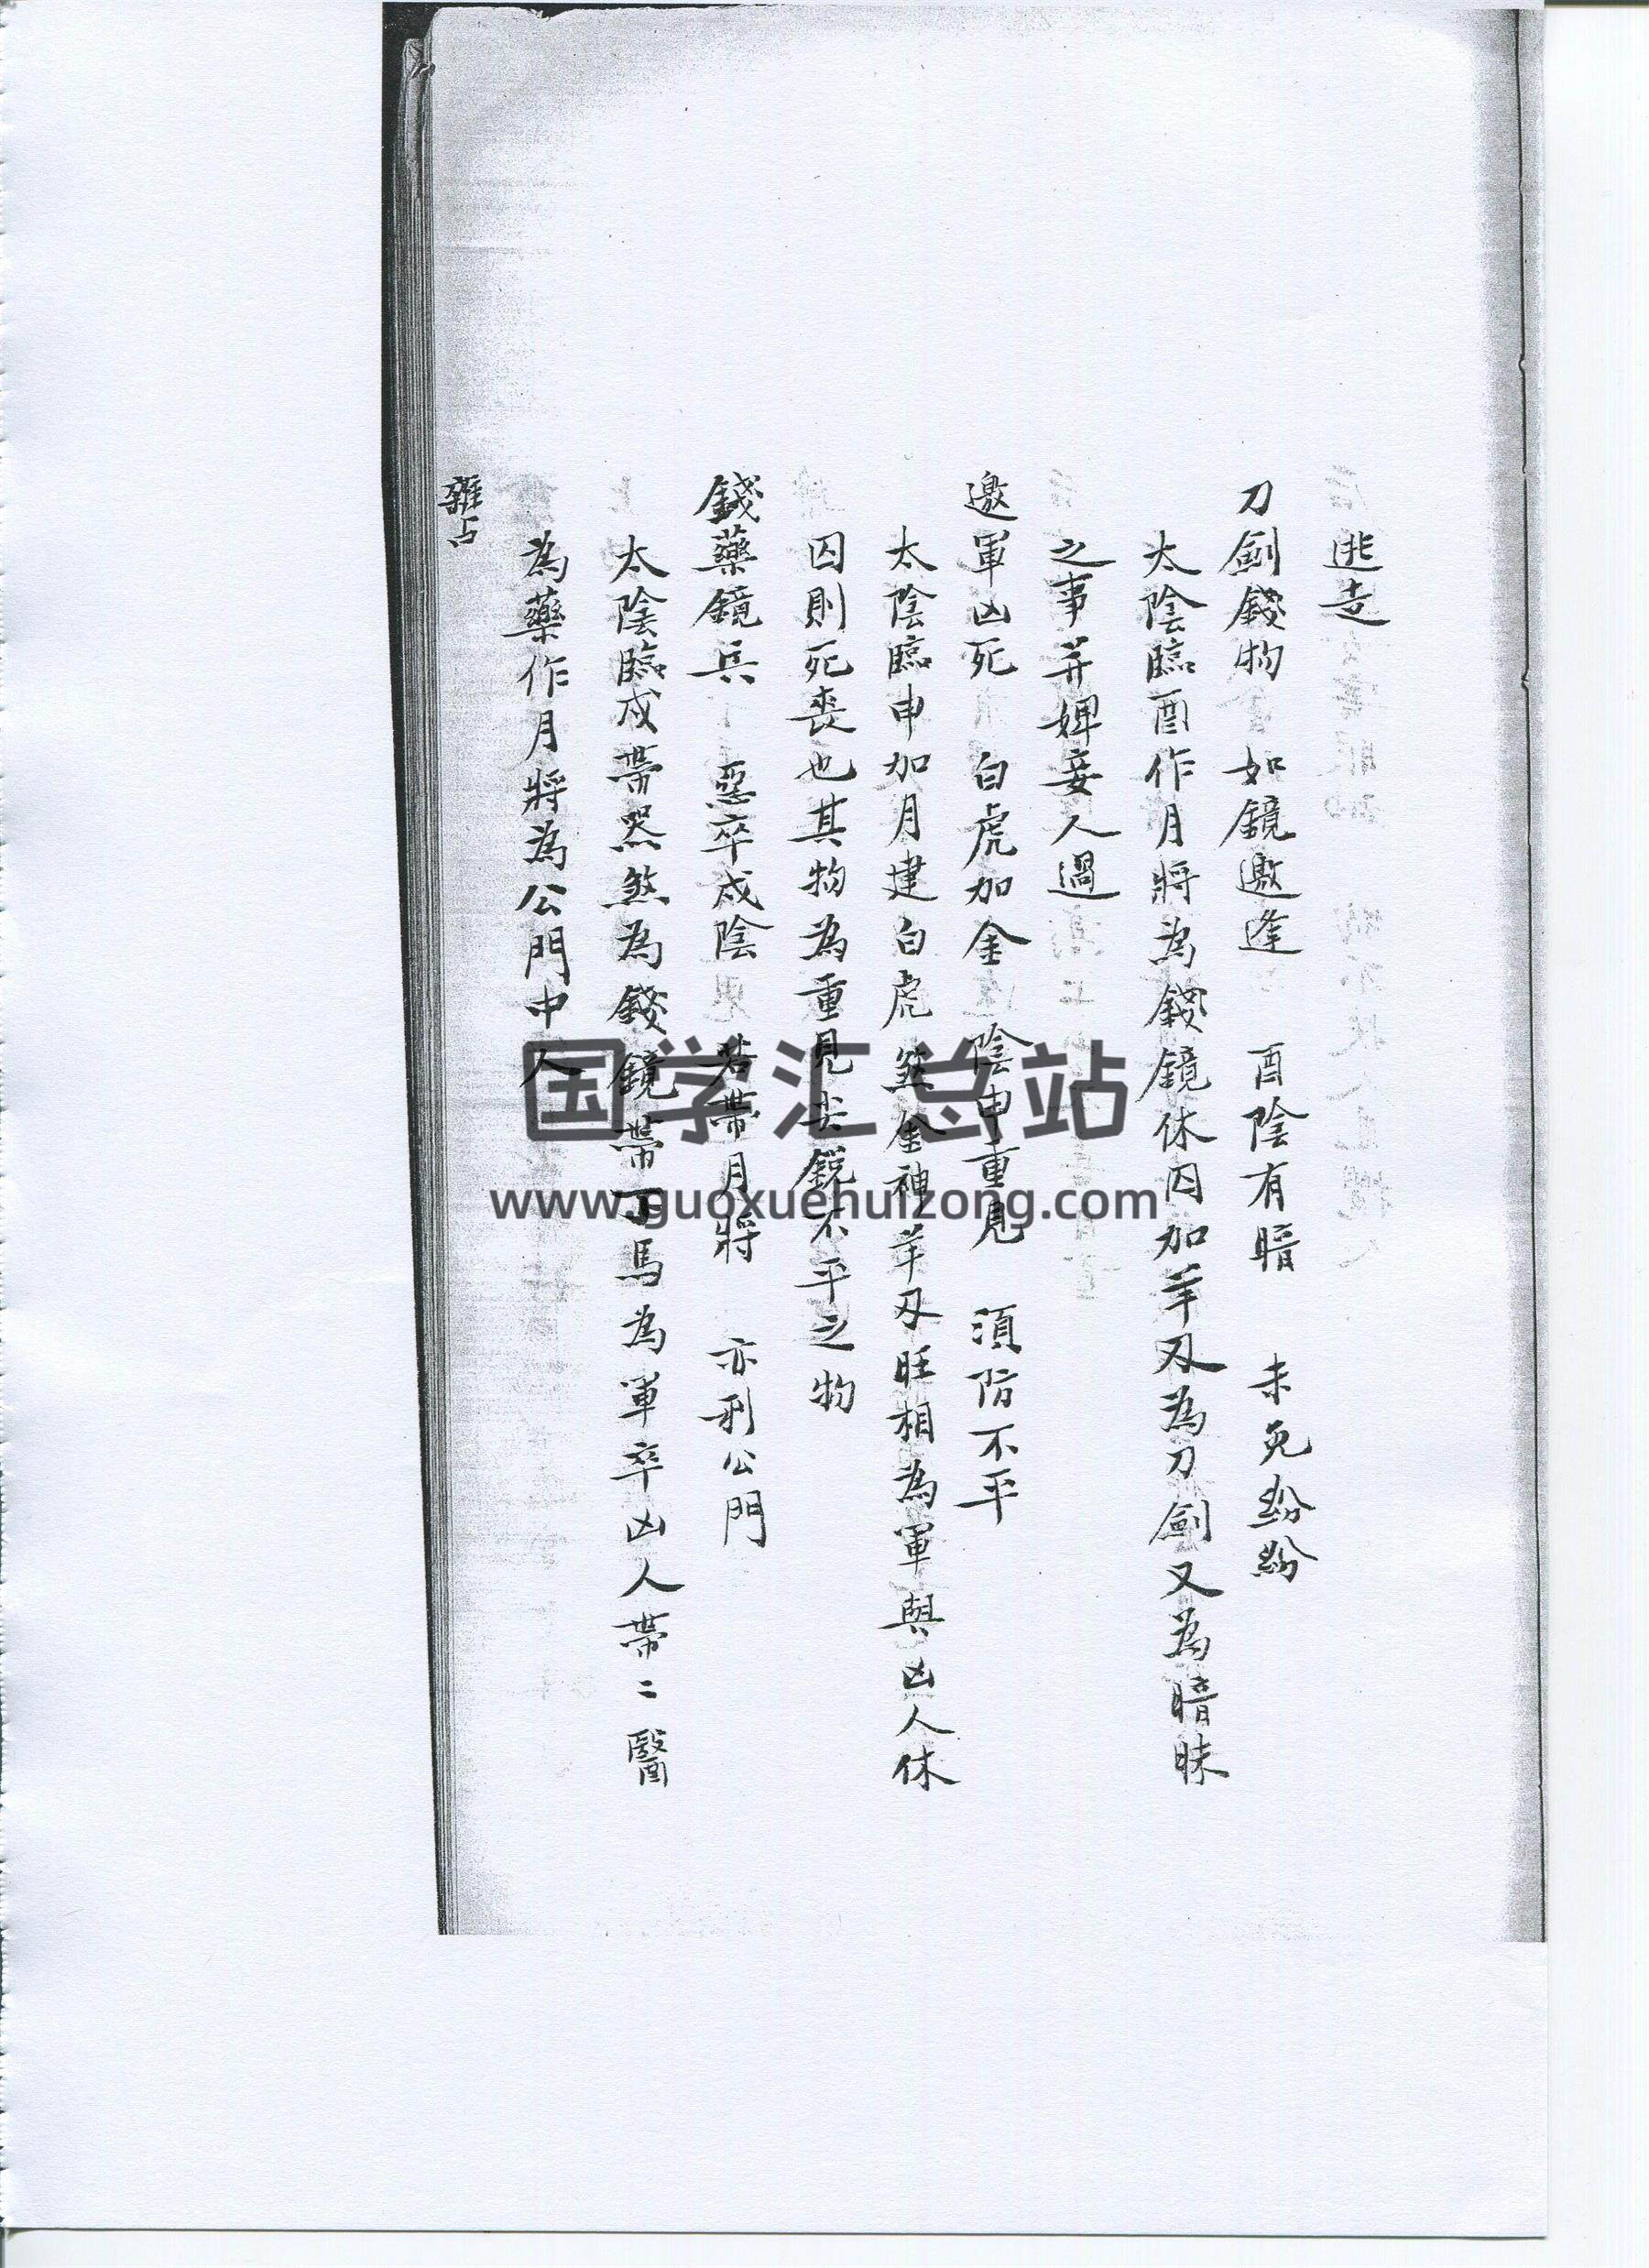 逃走
刀劍錢物 如鏡邀逢 酉陰有暗 未免紛紛
太陰臨酉作月將為錢鏡休囚加羊刃為刀劍又為暗昧
之事并婢妾人過
邀軍凶死 白虎加金 陰申重見 須防不平
太陰臨申加月建白虎煞金神羊刃旺相為軍與凶人休
囚則死喪也其物為重見尖銳不平之物
錢藥鏡兵 惡卒戌陰 若帶月將 亦利公門
太陰臨戌帶哭煞為錢鏡帶丁馬為軍卒凶人帶二醫
為藥作月將為公門中人
雜占
国学汇总站
www.guoxuehuizong.com